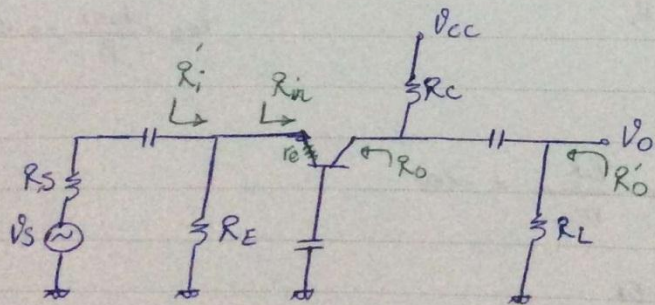 Vcc
Ri'
Rin
Rc
Vo
re
Ro
Ro'
Rs
Vs
RE
RL